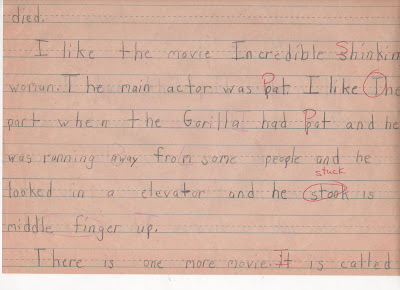 died.
I like the movie Incredible Shinkin
woman. The main actor was Pat I like The
part when the Gorilla had Pat and he
was running away from some people and he
stuck
looked in a elevator and he stook is
middle finger up.
There is one more movie. It is called